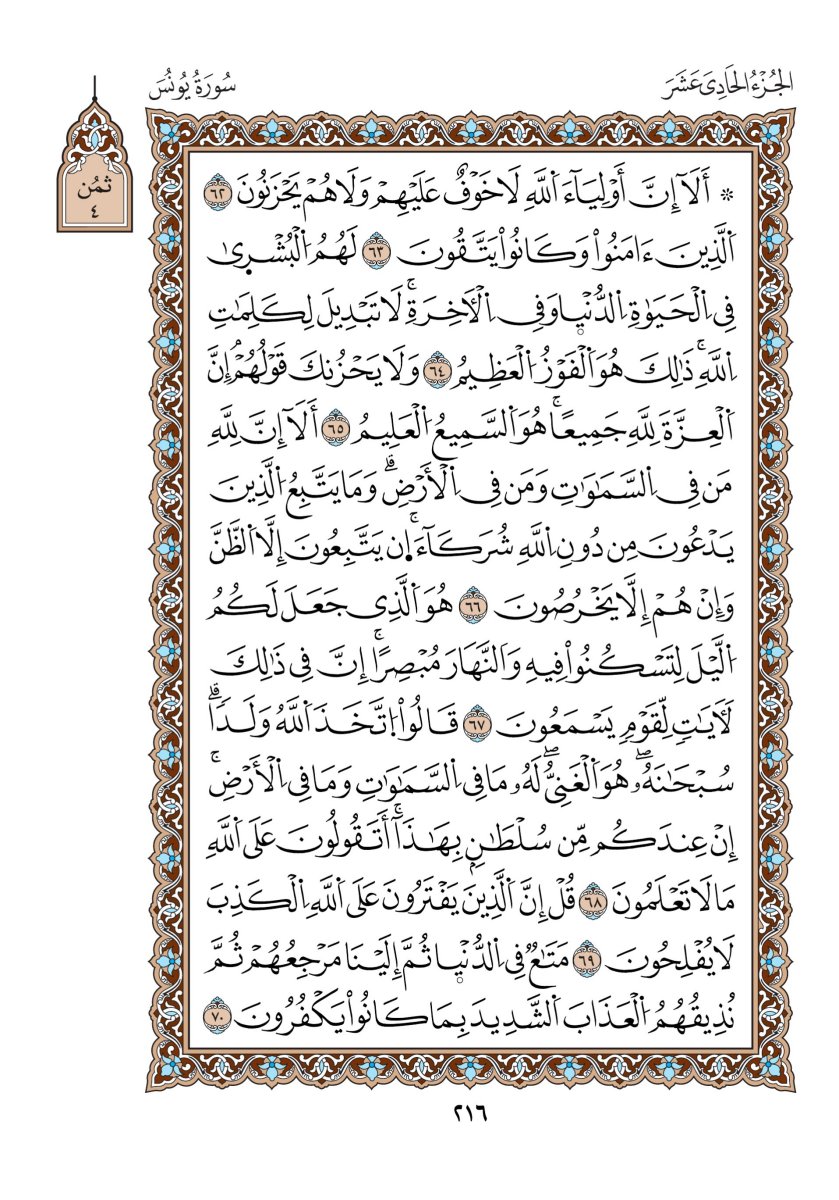 الجُزْءُ الحَادِيَ عَشَرَ
سُورَةُ يُونُسَ
ثُمُن
٤
۞ أَلَآ إِنَّ أَوْلِيَآءَ اَ۬للَّهِ لَا خَوْفٌ عَلَيْهِمْ وَلَا هُمْ يَحْزَنُونَ ٦٢
اَ۬لذِينَ ءَامَنُواْ وَكَانُواْ يَتَّقُونَ ٦٣ لَهُمُ اُ۬لْبُشْر۪ىٰ
فِي اِ۬لْحَيَوٰةِ اِ۬لدُّنْي۪ا وَفِي اِ۬لْأَخِرَةِۚ لَا تَبْدِيلَ لِكَلِمَٰتِ
اِ۬للَّهِۚ ذَٰلِكَ هُوَ اَ۬لْفَوْزُ اُ۬لْعَظِيمُ ٦٤ وَلَا يَحْزُنكَ قَوْلُهُمُۥٓ إِنَّ
اَ۬لْعِزَّةَ لِلَّهِ جَمِيعًاۚ هُوَ اَ۬لسَّمِيعُ اُ۬لْعَلِيمُ ٦٥ أَلَآ إِنَّ لِلَّهِ
مَن فِي اِ۬لسَّمَٰوَٰتِ وَمَن فِي اِ۬لْأَرْضِۗ وَمَا يَتَّبِعُ اُ۬لذِينَ
يَدْعُونَ مِن دُونِ اِ۬للَّهِ شُرَكَآءَۚ اِ۪ن يَتَّبِعُونَ إِلَّا اَ۬لظَّنَّ
وَإِنْ هُمْ إِلَّا يَخْرُصُونَ ٦٦ هُوَ اَ۬لذِي جَعَلَ لَكُمُ
اُ۬ليْلَ لِتَسْكُنُواْ فِيهِ وَالنَّهَارَ مُبْصِرًاۚ إِنَّ فِي ذَٰلِكَ
لَأٓيَٰتٖ لِّقَوْمٖ يَسْمَعُونَ ٦٧ قَالُواْ اُ۪تَّخَذَ اَ۬للَّهُ وَلَدًاۗ
سُبْحَٰنَهُۥۖ هُوَ اَ۬لْغَنِيُّۖ لَهُۥ مَا فِي اِ۬لسَّمَٰوَٰتِ وَمَا فِي اِ۬لْأَرْضِۚ
إِنْ عِندَكُم مِّن سُلْطَٰنِۢ بِهَٰذَآۚ أَتَقُولُونَ عَلَى اَ۬للَّهِ
مَا لَا تَعْلَمُونَ ٦٨ قُلْ إِنَّ اَ۬لذِينَ يَفْتَرُونَ عَلَى اَ۬للَّهِ اِ۬لْكَذِبَ
لَا يُفْلِحُونَ ٦٩ مَتَٰعٌ فِي اِ۬لدُّنْي۪ا ثُمَّ إِلَيْنَا مَرْجِعُهُمْ ثُمَّ
نُذِيقُهُمُ اُ۬لْعَذَابَ اَ۬لشَّدِيدَ بِمَا كَانُواْ يَكْفُرُونَ ٧٠
٢١٦